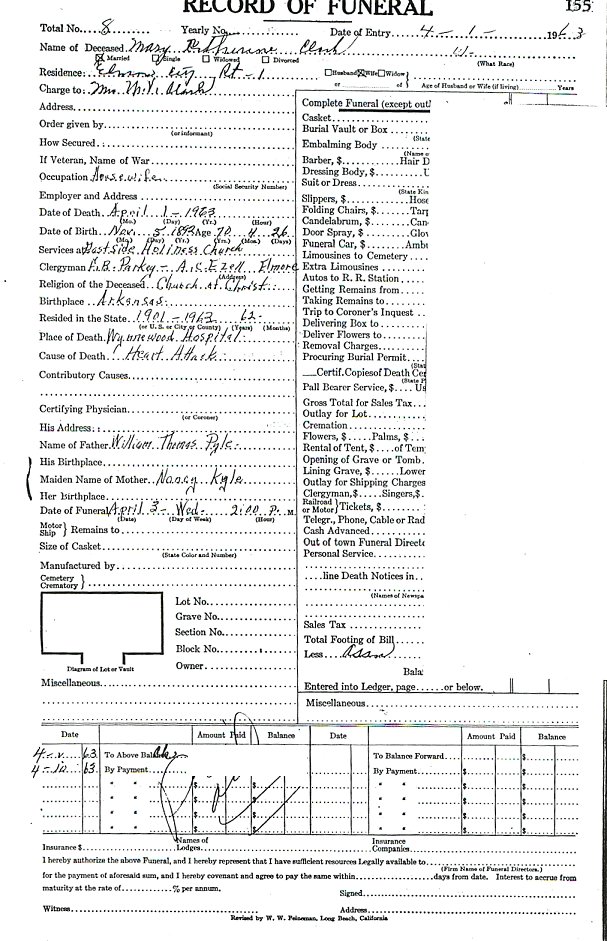 RECORD OF FUNERAL 155
Total No. 8 Yearly No. Date of Entry 4 - 1 - 1963
Name of Deceased Mary Clark W.
Married Single Widowed Divorced (What Race)
Residence: City Rt - 1 Husband Wife Widow
or or of Age of Husband or Wife (if living) Years
Charge to: Mrs
Address
Order given by
(or informant)
How Secured
If Veteran, Name of War
Occupation Housewife
(Social Security Number)
Employer and Address
Date of Death April 1 - 1963
(Mo.) (Day) (Yr.) (Hour)
Date of Birth Nov. 5 1892 Age 70 4 26
(Mo.) (Day) (Yr.) (Yrs.) (Mos.) (Days)
Services at Eastside Holiness Church
Clergyman F.B. Parkey - A.C. Ezell Elmore
(Address)
Religion of the Deceased Church of Christ
Birthplace Arkansas
Resided in the State 1901 - 1963 62 -
(or U. S. or City or County) (Years) (Months)
Place of Death Wynnewood Hospital
Cause of Death Heart Attack
Contributory Causes
Certifying Physician
(or Coroner)
His Address
Name of Father William Thomas Pyle
His Birthplace
Maiden Name of Mother Nancy Kyle
Her Birthplace
Date of Funeral April 3 - Wed - 2:00 P. M
(Date) (Day of Week) (Hour)
Motor Ship Remains to
Size of Casket
(State Color and Number)
Manufactured by
Cemetery Crematory
Lot No.
Grave No.
Section No.
Block No.
Owner
Diagram of Lot or Vault
Miscellaneous
Complete Funeral (except out
Casket
Burial Vault or Box
(State
Embalming Body
(Name o
Barber, $ Hair D
Dressing Body, $
Suit or Dress
(State Kin
Slippers, $ Hose
Folding Chairs, $ Tar
Candelabrum, $ Can
Door Spray, $ Glo
Funeral Car, $ Amb
Limousines to Cemetery
Extra Limousines
Autos to R. R. Station
Getting Remains from
Taking Remains to
Trip to Coroner's Inquest
Delivering Box to
Deliver Flowers to
Removal Charges
Procuring Burial Permit
(Stat
Certif. Copies of Death Cer
(State P
Pall Bearer Service, $ Us
Gross Total for Sales Tax
Outlay for Lot
Cremation
Flowers, $ Palms, $
Rental of Tent, $ of Tem
Opening of Grave or Tomb
Lining Grave, $ Lower
Outlay for Shipping Charges
Clergyman, $ Singers, $
Railroad or Motor Tickets, $
Telegr., Phone, Cable or Rad
Cash Advanced
Out of town Funeral Directo
Personal Service
line Death Notices in
(Names of Newspa
Sales Tax
Total Footing of Bill
Less
Bala
Entered into Ledger, page or below.
Miscellaneous
Date Amount Paid Balance Date Amount Paid Balance
4 - 63 To Above Balance To Balance Forward
4 - 10 63 By Payment By Payment $ $
" " $ $ " " $ $
" " $ $ " " $ $
" " $ $ " " $ $
" " $ $ " " $ $
Insurance $ Names of Lodges Insurance Companies
I hereby authorize the above Funeral, and I hereby represent that I have sufficient resources Legally available to
(Firm Name of Funeral Directors.)
for the payment of aforesaid sum, and I hereby covenant and agree to pay the same within days from date. Interest to accrue from
maturity at the rate of % per annum.
Signed
Witness Address
Revised by W. W. Feineman, Long Beach, California